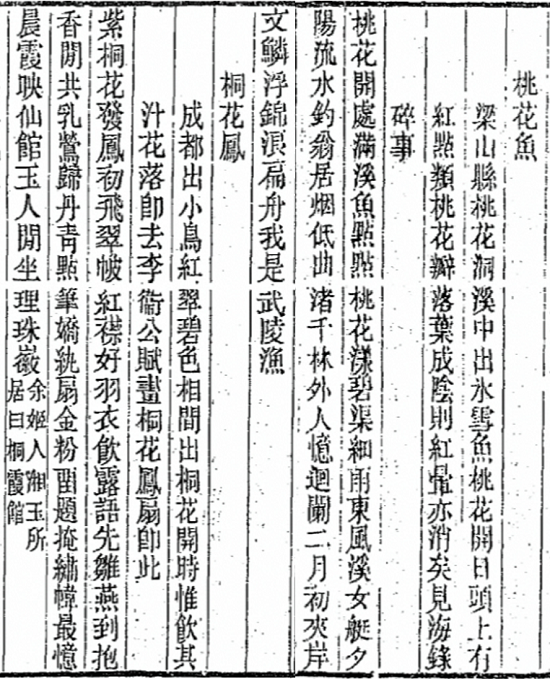 桃花魚
梁山縣桃花洞溪中出氷雪魚桃花開日頭上有
紅點類桃花瓣落葉成陰則紅暈亦消矣見海錄
碎事
桃花開處滿溪魚點點桃花漾碧渠細雨東風溪女艇夕
陽流水釣翁居烟低曲渚千林外人憶迴闌二月初夾岸
文鱗浮錦浪扁舟我是武陵漁
桐花鳳
成都出小鳥紅翠碧色相間出桐花開時惟飲其
汁花落卽去李衞公賦畫桐花鳳扇卽此
紫桐花發鳳初飛翠帔紅襟好羽衣飲露語先雛燕到抱
香閒共乳鶯歸丹靑點筆嬌紈扇金粉畱題掩繡幃最憶
晨霞映仙館玉人閒坐理珠徽余姬人湘玉所居曰桐霞館